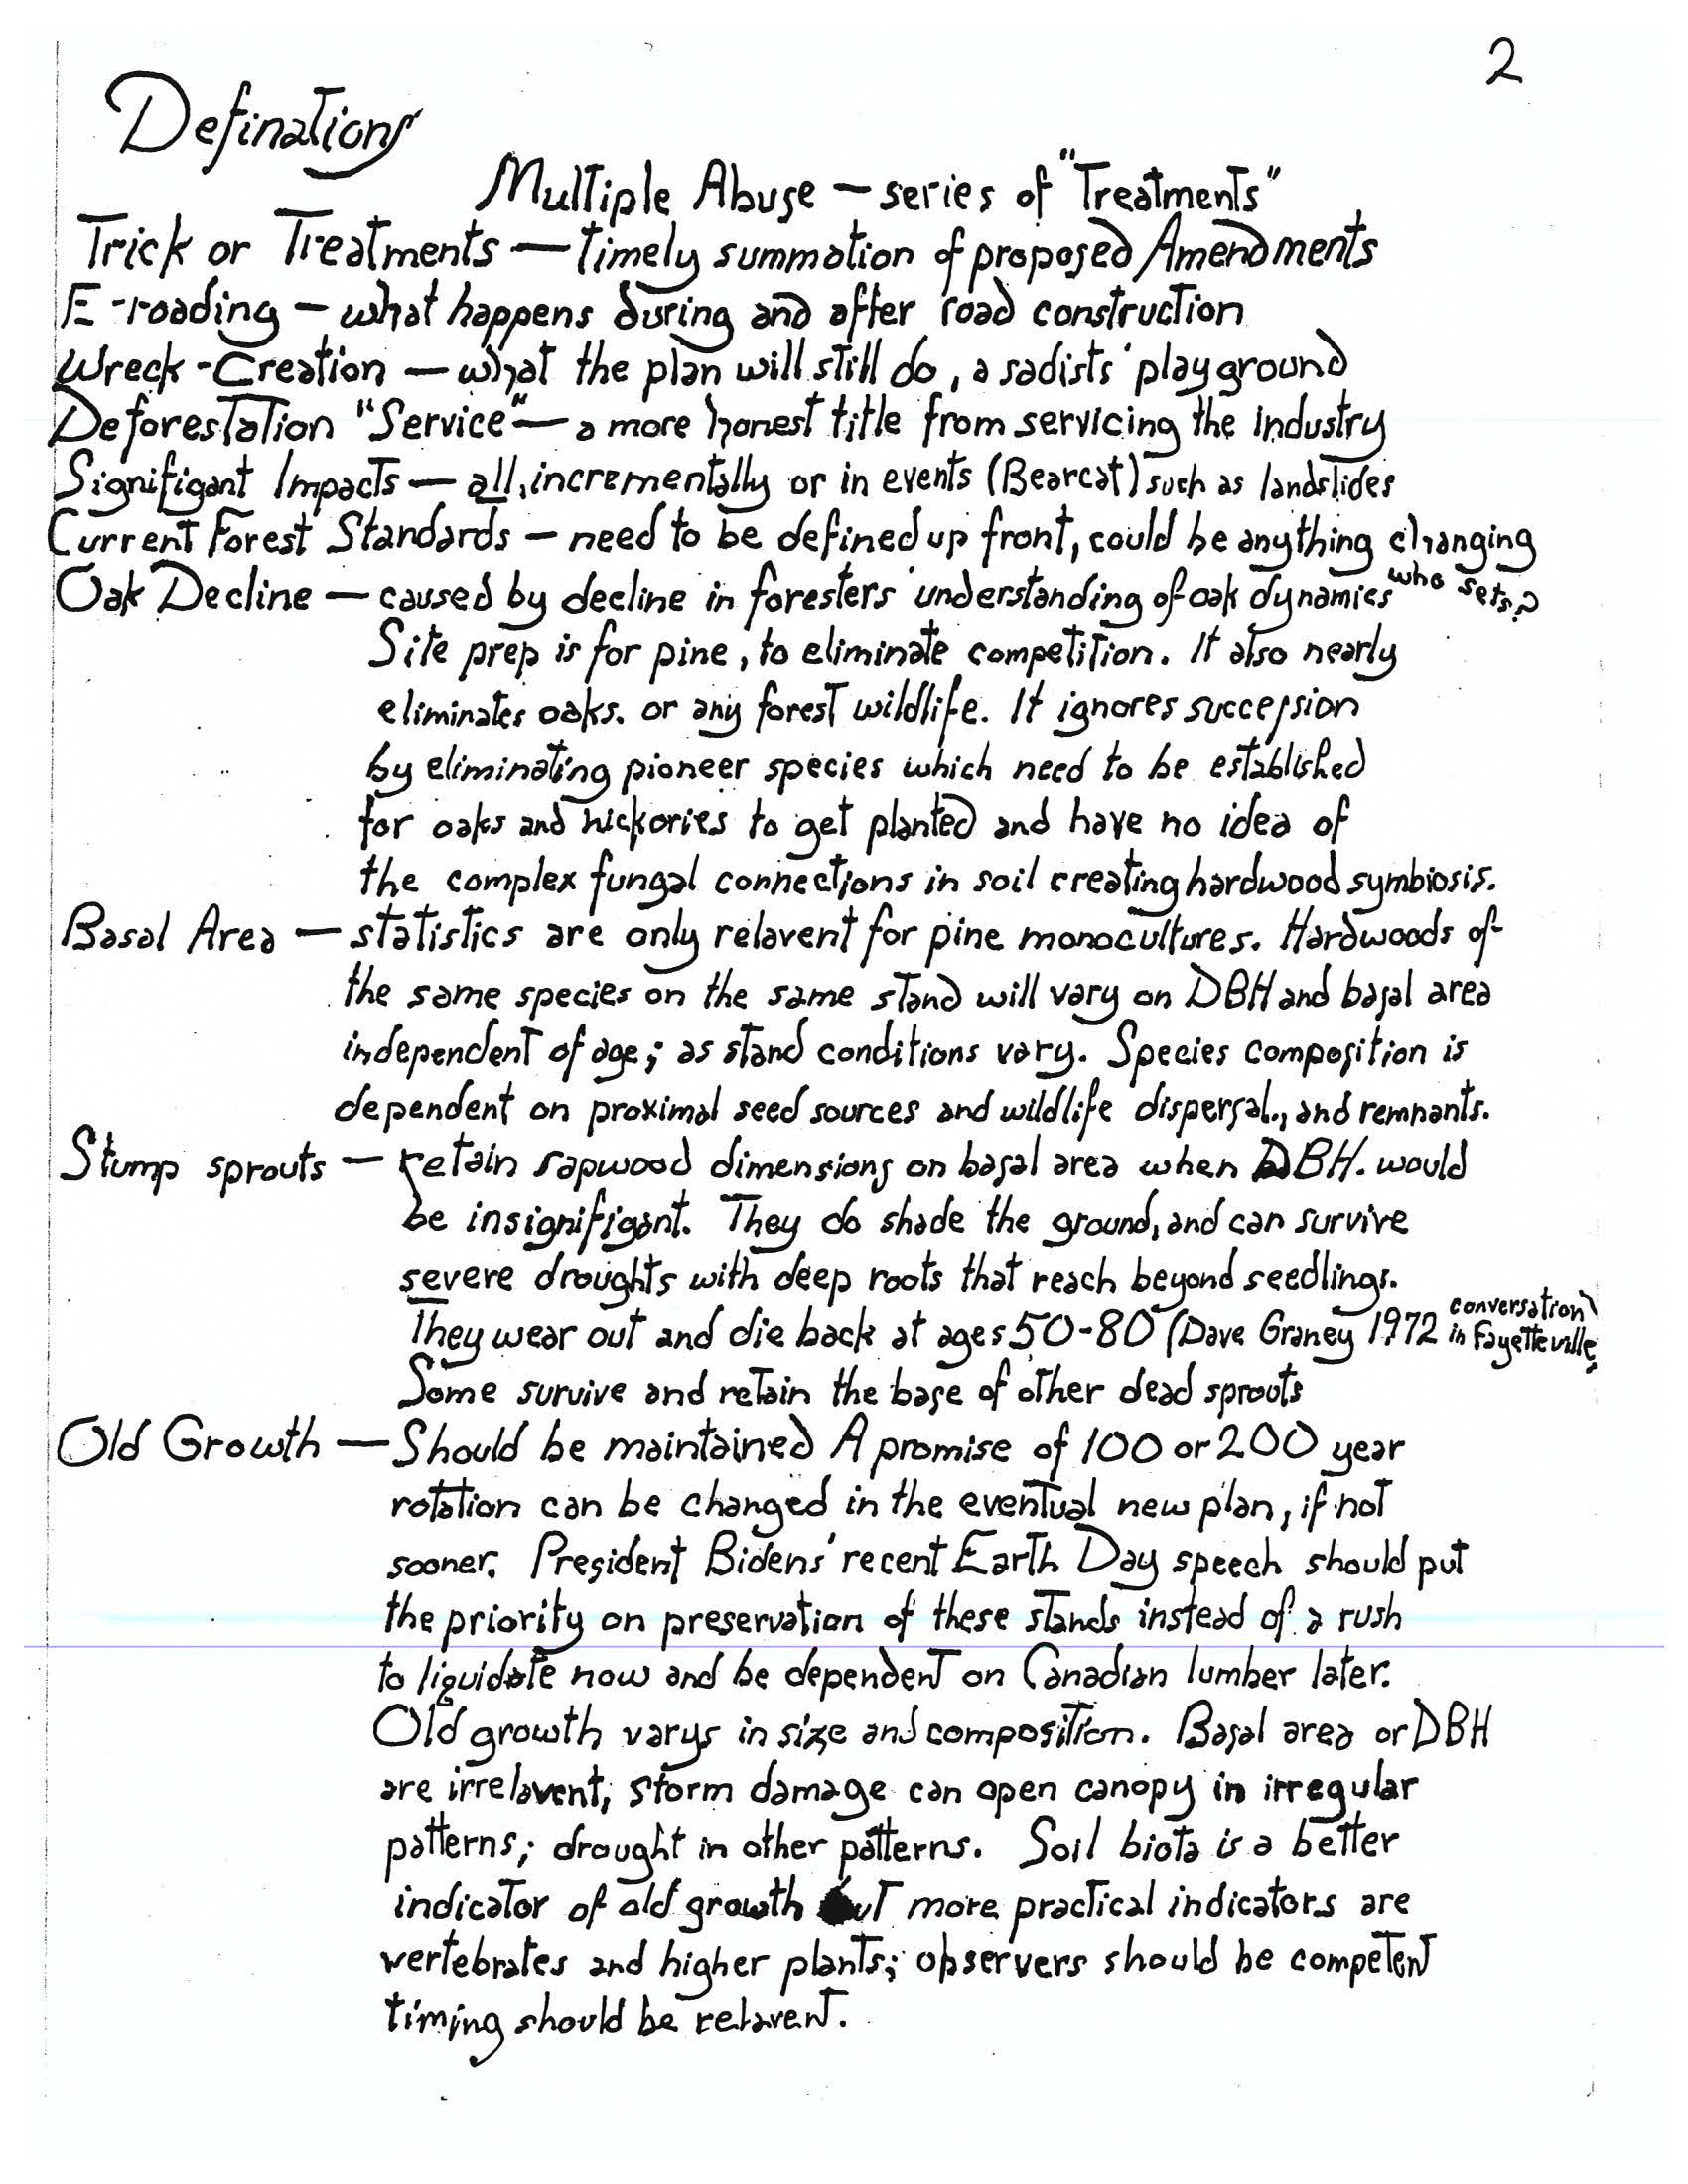 2
Definations
Multiple Abuse — series of "Treatments"
Trick or Treatments — timely summation of proposed Amendments
E-roading — what happens during and after road construction
Wreck-Creation — what the plan will still do, a sadists' playground
Deforestation "Service" — a more honest title from servicing the industry
Signifigant Impacts — all, incrementally or in events (Bearcat) such as landslides
Current Forest Standards — need to be defined up front, could be anything changing
who sets?
Oak Decline — caused by decline in foresters' understanding of oak dynamics
Site prep is for pine, to eliminate competition. It also nearly
eliminates oaks. or any forest wildlife. It ignores succession
by eliminating pioneer species which need to be established
for oaks and hickories to get planted and have no idea of
the complex fungal connections in soil creating hardwood symbiosis.
Basal Area — statistics are only relavent for pine monocultures. Hardwoods of
the same species on the same stand will vary on DBH and basal area
independent of age; as stand conditions vary. Species composition is
dependent on proximal seed sources and wildlife dispersal., and remnants.
Stump sprouts — retain sapwood dimensions on basal area when DBH. would
be insignifigant. They do shade the ground, and can survive
severe droughts with deep roots that reach beyond seedlings.
They wear out and die back at ages 50-80 (Dave Graney 1972 conversation in Fayetteville)
Some survive and retain the base of other dead sprouts
Old Growth — Should be maintained A promise of 100 or 200 year
rotation can be changed in the eventual new plan, if not
sooner. President Bidens' recent Earth Day speech should put
the priority on preservation of these stands instead of a rush
to liquidate now and be dependent on Canadian lumber later.
Old growth varys in size and composition. Basal area or DBH
are irrelavent; storm damage can open canopy in irregular
patterns; drought in other patterns. Soil biota is a better
indicator of old growth but more practical indicators are
vertebrates and higher plants; observers should be competent
timing should be relavent.